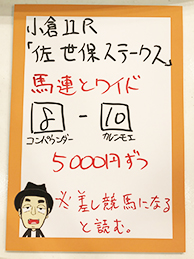 小倉11R
「佐世保ステークス」
馬連とワイド
8 - 10
コンパウンダー カルンモエ
5000円ずつ
※差し競馬になる
と読む。